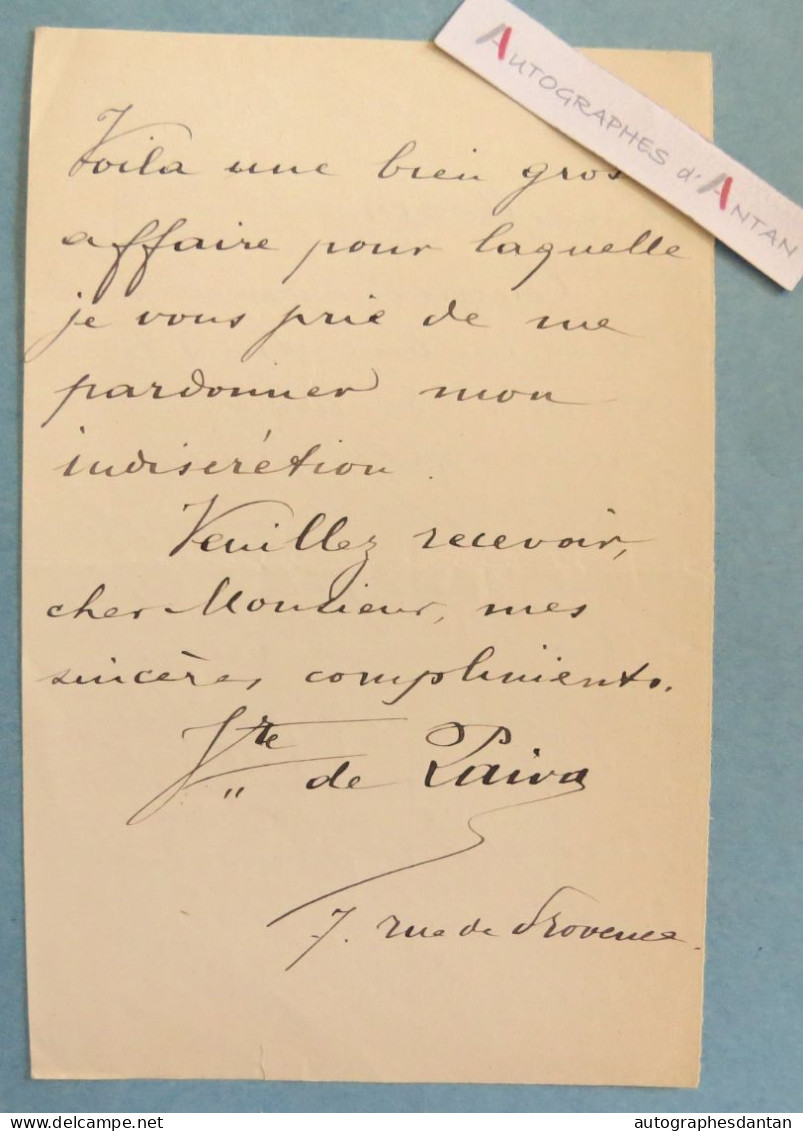 AUTOGRAPHES d'ANTAN
Voilà une bien gros
affaire pour laquelle
je vous prie de me
pardonner mon
indiscrétion.
Veuillez recevoir,
cher Monsieur, mes
sincères compliments.
Vte de Paiva
7. rue de Provence.
delcampe.net
autographesdantan